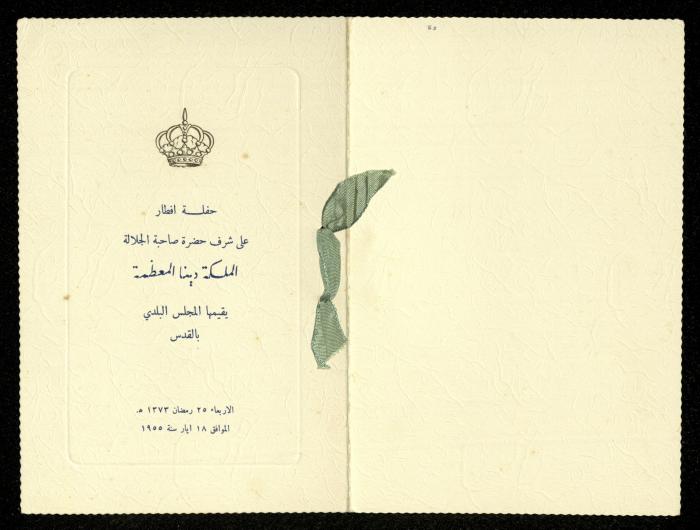 حفلة افطار
على شرف حضرة صاحبة الجلالة
الملكة دينا المعظمة
يقيمها المجلس البلدي
بالقدس
الاربعاء ٢٥ رمضان ١٣٧٣ ه.
الموافق ١٨ ايار سنة ١٩٥٥